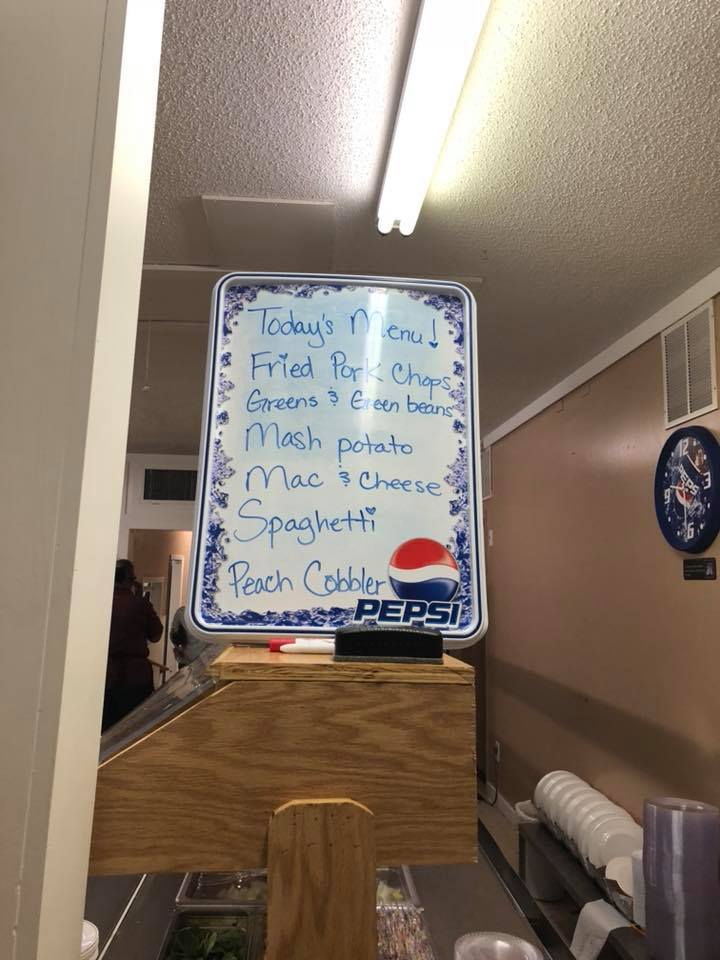 Today's Menu!
Fried Pork Chops
Greens & Green beans
Mash potato
Mac & Cheese
Spaghetti
Peach Cobbler
PEPSI
12
3
6
9
PEPSI